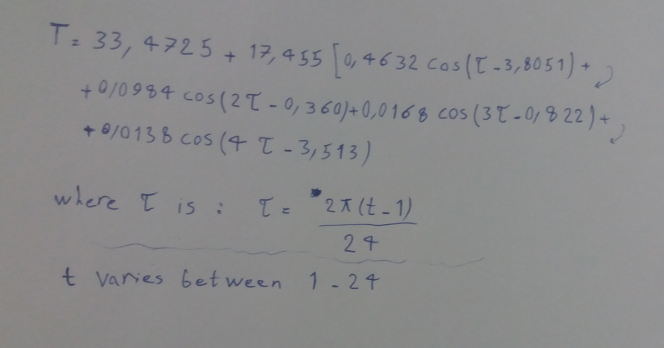 T= 33,4725 + 17,455 [0,4632 cos(τ-3,8051)+
+0,0984 cos(2τ-0,360)+0,0168 cos(3τ-0,822)+
+0,0138 cos(4τ-3,513)
where τ is : τ= 2π(t-1)
24
t varies between 1-24